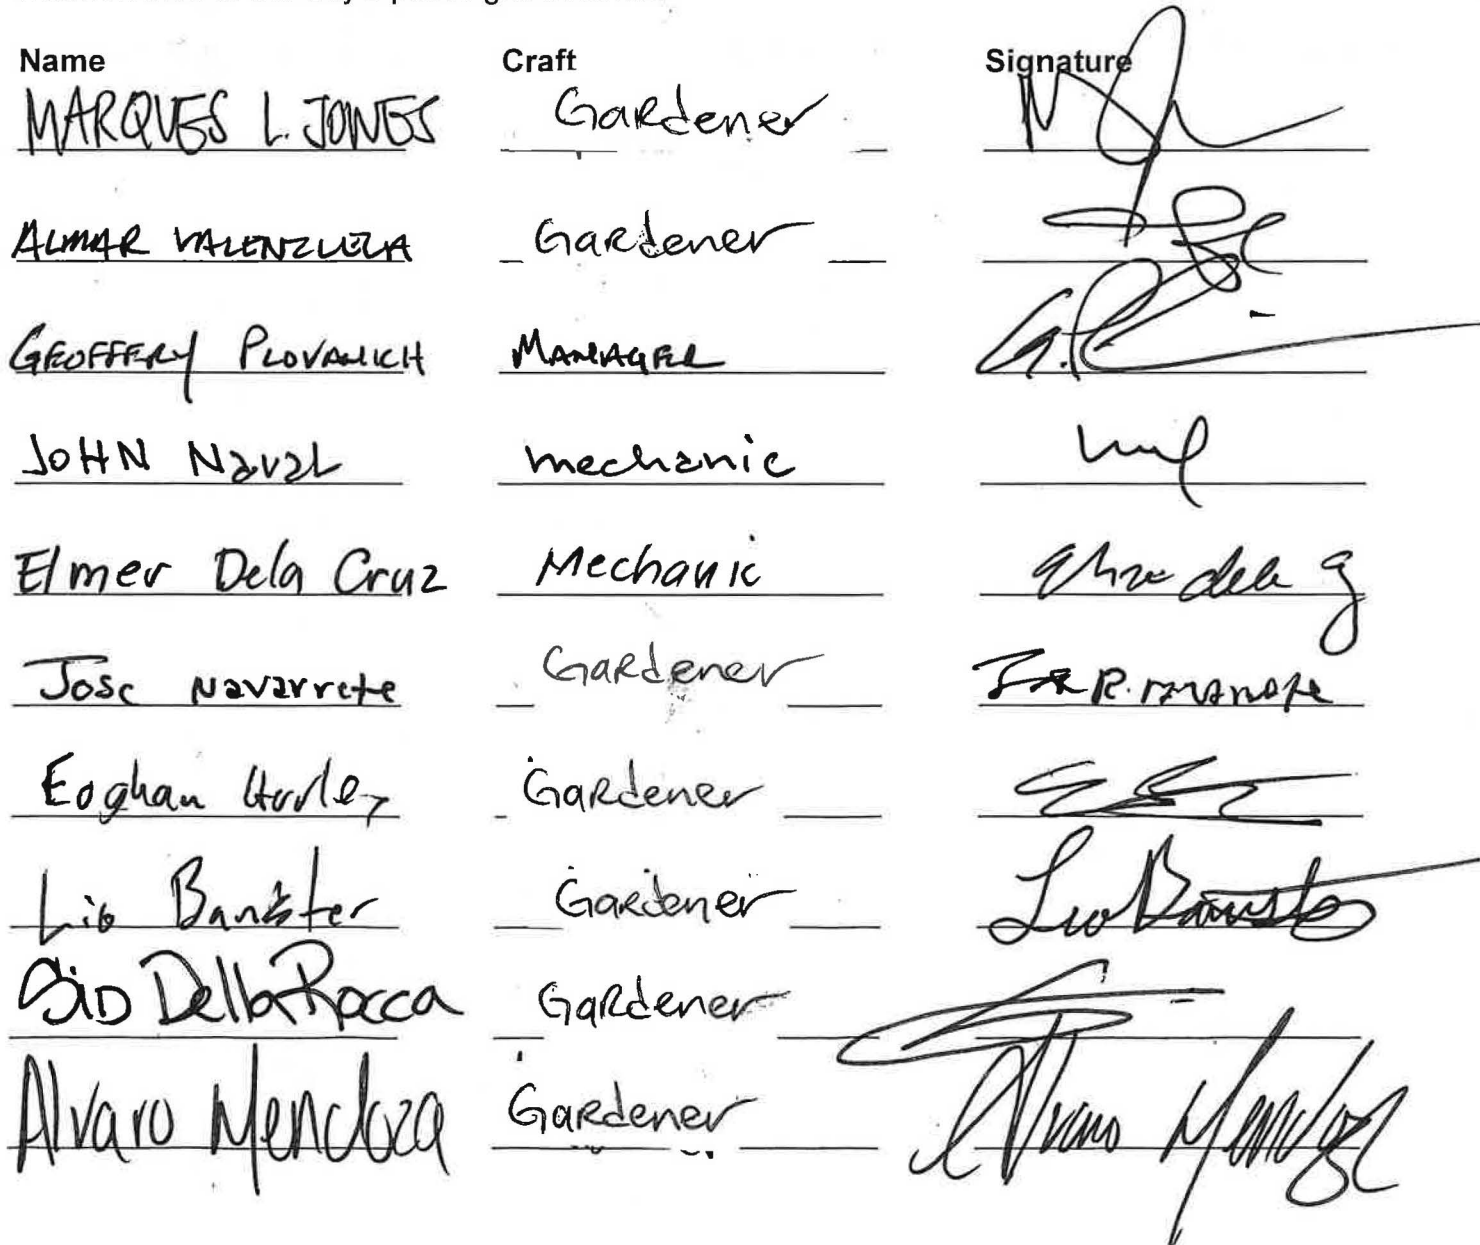 Name Craft Signature
MARQUES L. JONES Gardener
ALMAR VALENZUELA Gardener
GEOFFERY PLOVANICH MANAGER
JOHN Naval mechanic
Elmer Dela Cruz Mechanic
Jose Navarrete Gardener
Eoghan Hurley Gardener
Lio Banister Gardener Leo Banister
SiD DellaRocca Gardener
Alvaro Mendoza Gardener Alvaro Mendoza